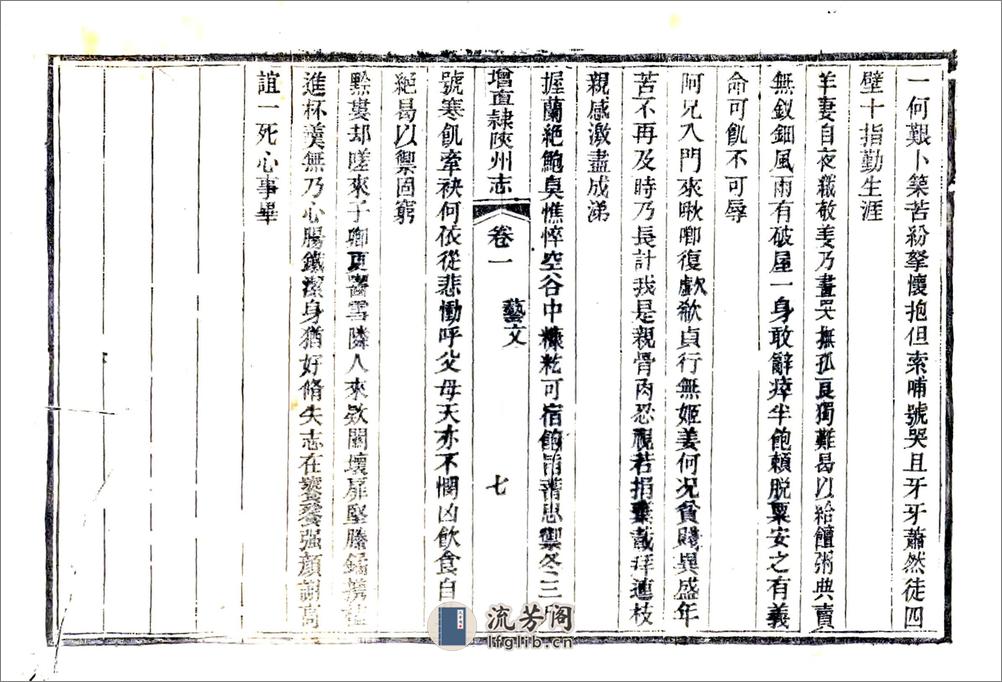 一何艱卜築苦紛拏懷抱但索哺號哭且牙牙蕭然徒四
壁十指勤生涯
羊妻自夜織敬姜乃晝哭撫孤哀獨難曷以給饘粥典賣
無釵鈿風雨有破屋一身敢辭瘁半飽賴脫粟安之有義
命可飢不可辱
阿兄入門來啾唧復歔欷貞行無姬姜何况貧賤異盛年
苦不再及時乃長計我是親骨肉忍視若捐棄戴拜連枝
親感激盡成涕
握蘭絕鮑臭憔悴空谷中糠籺可宿飽旨蓄思禦冬三
增直隷陝州志 卷一 藝文 七
號寒飢牽袂何依從悲慟呼父母天亦不憫凶飲食自
絕曷以禦固窮
黔婁却嗟來子卿更齧雪隣人來欵關壞扉堅縢鐍
進杯羹無乃心腸鐵潔身猶好脩失志在饕餮强顏謝高
誼一死心事畢
流芳阁
lfglib.cn